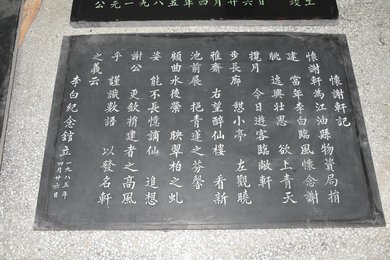 公元一九八五年四月廿六日 竣工
懷謝軒記
懷謝軒為江油縣物資局捐
建 當年李白臨風懷念謝
朓 逸興壯思 欲上青天
攬月 今日遊客臨敞軒
步長廊 憩小亭 左觀曉
雅齋 右望醉仙樓 看新
池前展 挹青蓮之芬馨
顧曲水後縈 映翠柏之虬
姿 能不長憶謫仙 追想
謝公 更欽捐建者之高風
乎 謹識數語 以發名軒
之義云
李白紀念館立 一九八五年
四月廿六日